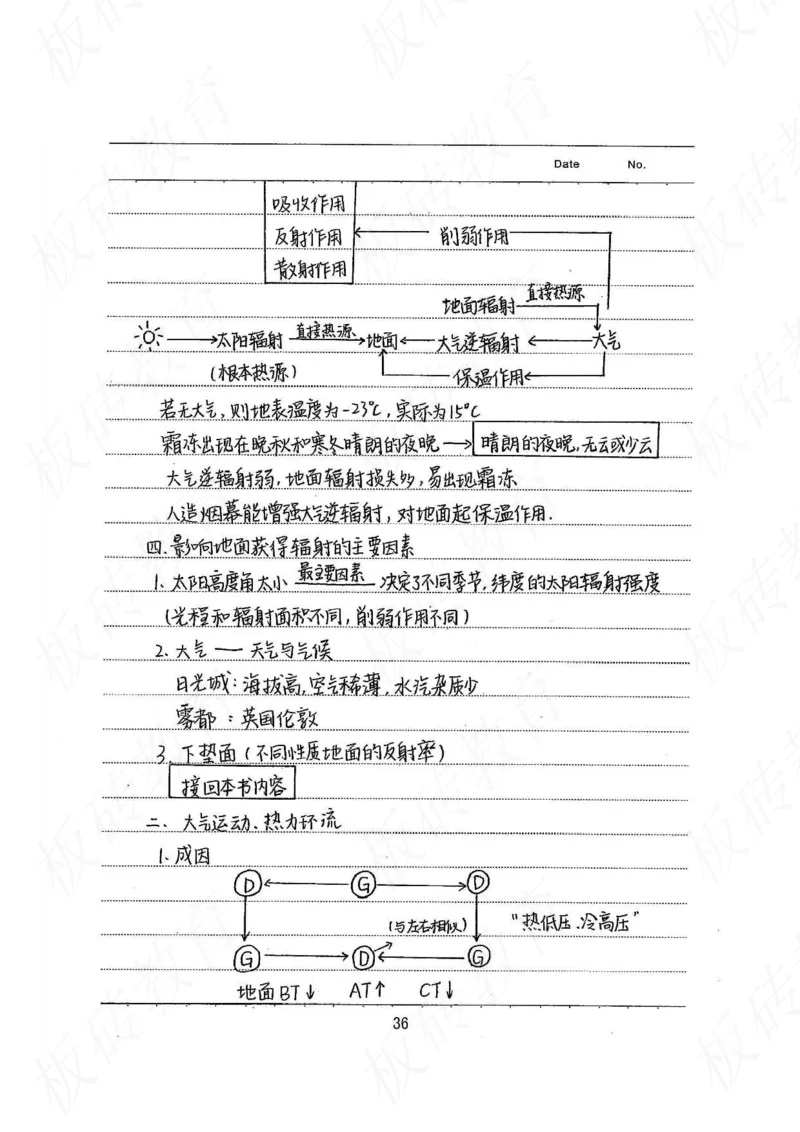 Date No.
吸收作用
反射作用 ← 削弱作用
散射作用
地面辐射 直接热源
太阳辐射 直接热源 地面 ← 大气逆辐射 ← 大气
(根本热源) 保温作用
若无大气,则地表温度为-23℃,实际为15℃
霜冻出现在晚秋和寒冬晴朗的夜晚 → 晴朗的夜晚,无云或少云
大气逆辐射弱,地面辐射损失多,易出现霜冻
人造烟幕能增强大气逆辐射,对地面起保温作用.
四.影响地面获得辐射的主要因素
1.太阳高度角大小 最主要因素 决定了不同季节,纬度的太阳辐射强度
(光程和辐射面积不同,削弱作用不同)
2.大气 — 天气与气候
日光城:海拔高,空气稀薄,水汽杂质少
雾都:英国伦敦
3.下垫面(不同性质地面的反射率)
接回本书内容
二、大气运动、热力环流
1.成因
D ← G → D
(与左右相似) "热低压、冷高压"
G → D ← G
地面BT↓ AT↑ CT↓
36
板砖教育